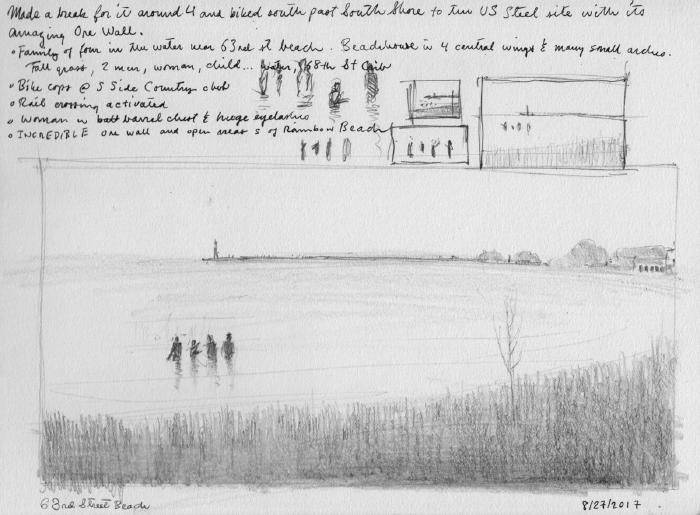 Made a break for it around 4 and biked south past South Shore to the US Steel site with its
amazing Ore Wall.
• Family of four in the water near 63rd st beach. Beachhouse in 4 central wings & many small arches.
Tall grass, 2 men, woman, child... water, 68th St Crib
• Bike cops @ S Side Country club
• Rail crossing activated
• Woman w barrel chest & huge eyelashes
• INCREDIBLE ore wall and open area S of Rainbow Beach
63rd Street Beach
8/27/2017